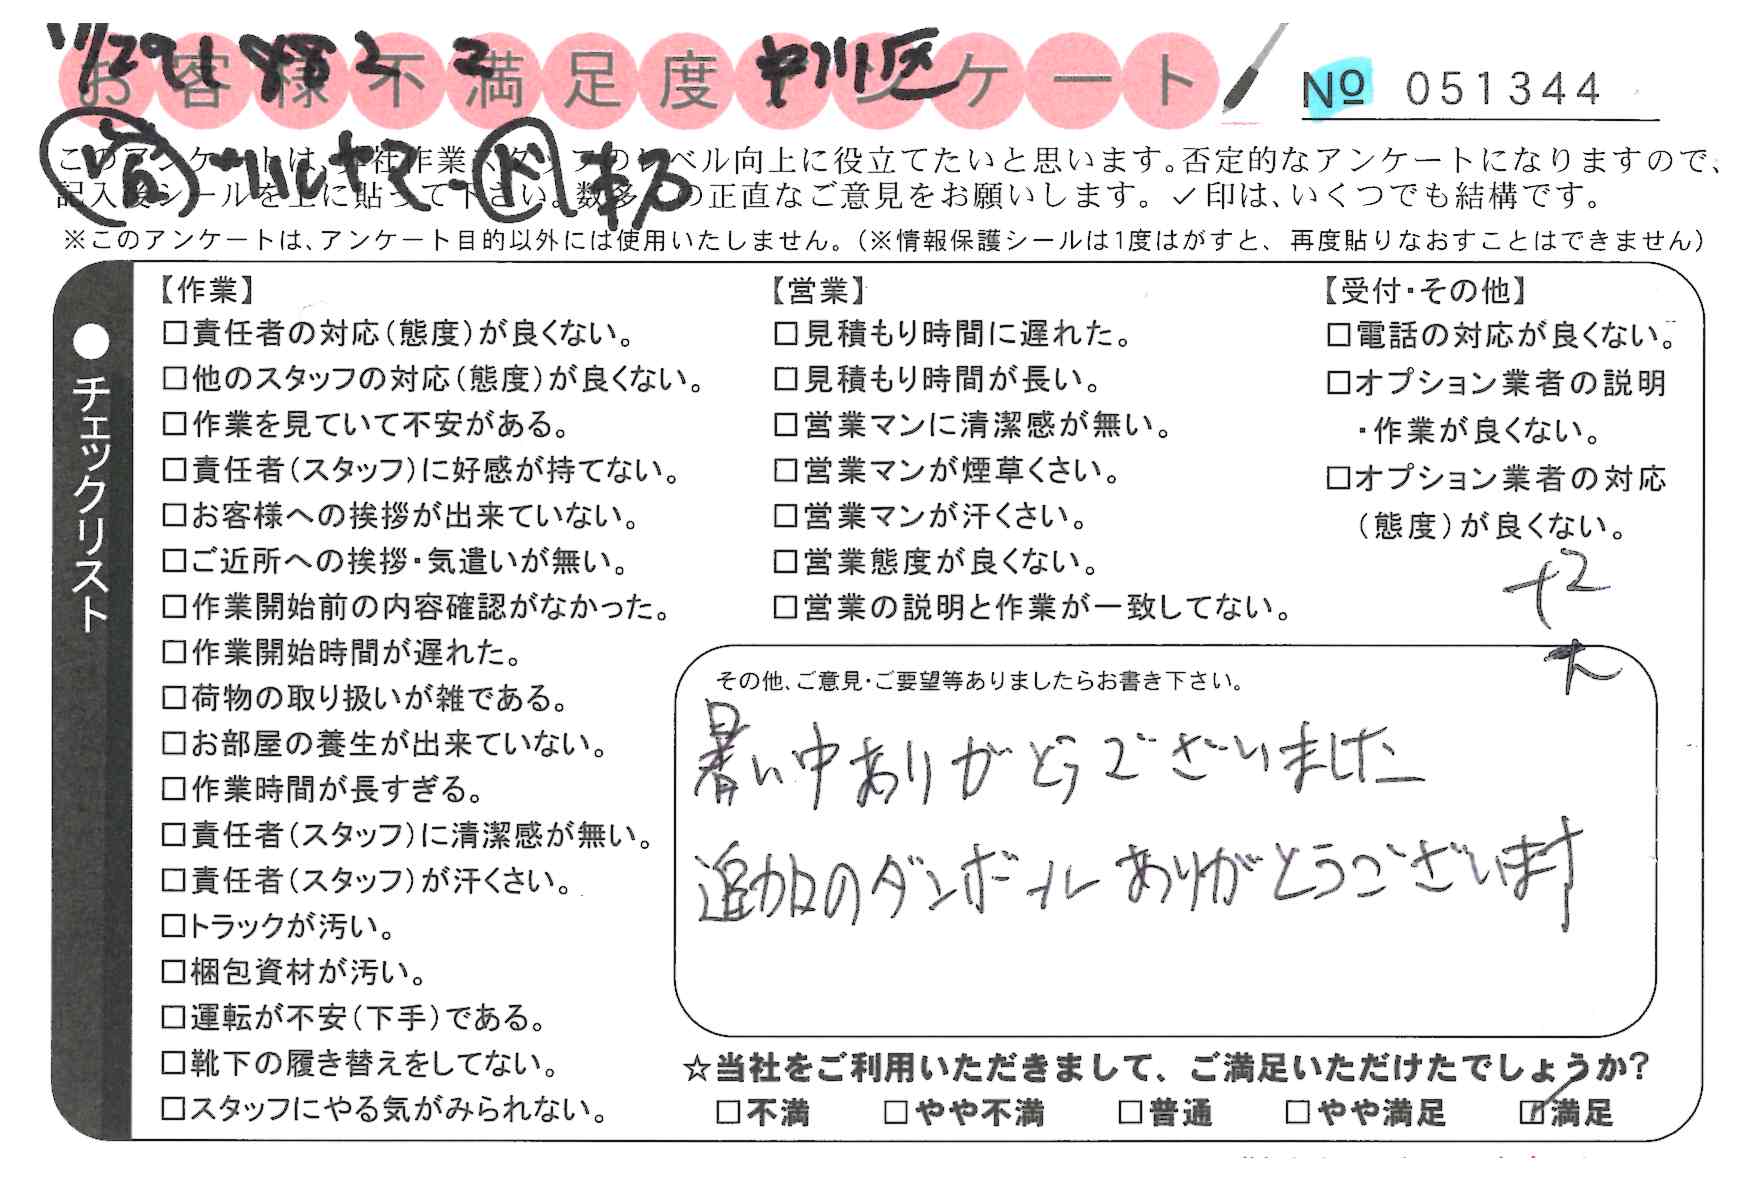 お客様不満足度アンケート
中川区
№ 051344
このアンケートは、当社作業スタッフのレベル向上に役立てたいと思います。否定的なアンケートになりますので、
記入後シールを上に貼って下さい。数多くの正直なご意見をお願いします。✓印は、いくつでも結構です。
※このアンケートは、アンケート目的以外には使用いたしません。(※情報保護シールは1度はがすと、再度貼りなおすことはできません)
●チェックリスト
【作業】
□責任者の対応(態度)が良くない。
□他のスタッフの対応(態度)が良くない。
□作業を見ていて不安がある。
□責任者(スタッフ)に好感が持てない。
□お客様への挨拶が出来ていない。
□ご近所への挨拶・気遣いが無い。
□作業開始前の内容確認がなかった。
□作業開始時間が遅れた。
□荷物の取り扱いが雑である。
□お部屋の養生が出来ていない。
□作業時間が長すぎる。
□責任者(スタッフ)に清潔感が無い。
□責任者(スタッフ)が汗くさい。
□トラックが汚い。
□梱包資材が汚い。
□運転が不安(下手)である。
□靴下の履き替えをしてない。
□スタッフにやる気がみられない。
【営業】
□見積もり時間に遅れた。
□見積もり時間が長い。
□営業マンに清潔感が無い。
□営業マンが煙草くさい。
□営業マンが汗くさい。
□営業態度が良くない。
□営業の説明と作業が一致してない。
【受付・その他】
□電話の対応が良くない。
□オプション業者の説明
・作業が良くない。
□オプション業者の対応
(態度)が良くない。
+2
その他、ご意見・ご要望等ありましたらお書き下さい。
暑い中ありがとうございました
追加のダンボールありがとうございます
☆当社をご利用いただきまして、ご満足いただけたでしょうか?
□不満 □やや不満 □普通 □やや満足 ☑満足